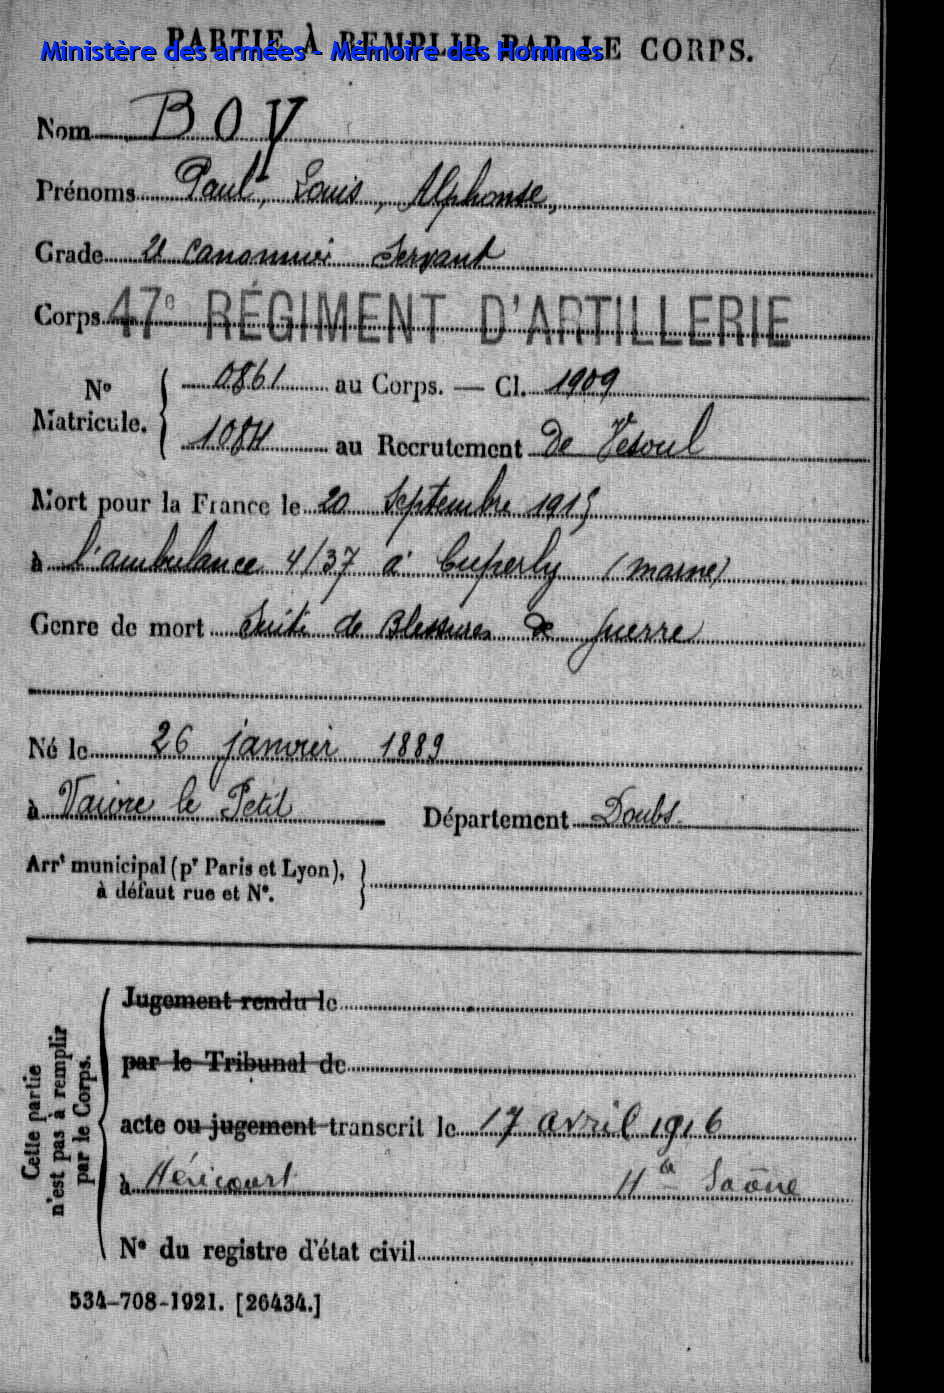 PARTIE À REMPLIR PAR LE CORPS.
Ministère des armées - Mémoire des Hommes
Nom BOY
Prénoms Paul, Louis, Alphonse,
Grade 2e Canonnier Servant
Corps 47e RÉGIMENT D'ARTILLERIE
No Matricule. { 0861 au Corps. — Cl. 1909
1084 au Recrutement De Vesoul
Mort pour la France le 20 Septembre 1915
à l'ambulance 4/37 à Cuperly (marne)
Genre de mort Suite de Blessures de guerre
Né le 26 janvier 1889
à Vaivre le Petit Département Doubs.
Arrt municipal (pr Paris et Lyon),
à défaut rue et No.
Cette partie n'est pas à remplir par le Corps.
Jugement rendu le
par le Tribunal de
acte ou jugement transcrit le 17 avril 1916
à Héricourt Hte Saône
No du registre d'état civil
534-708-1921. [26434.]